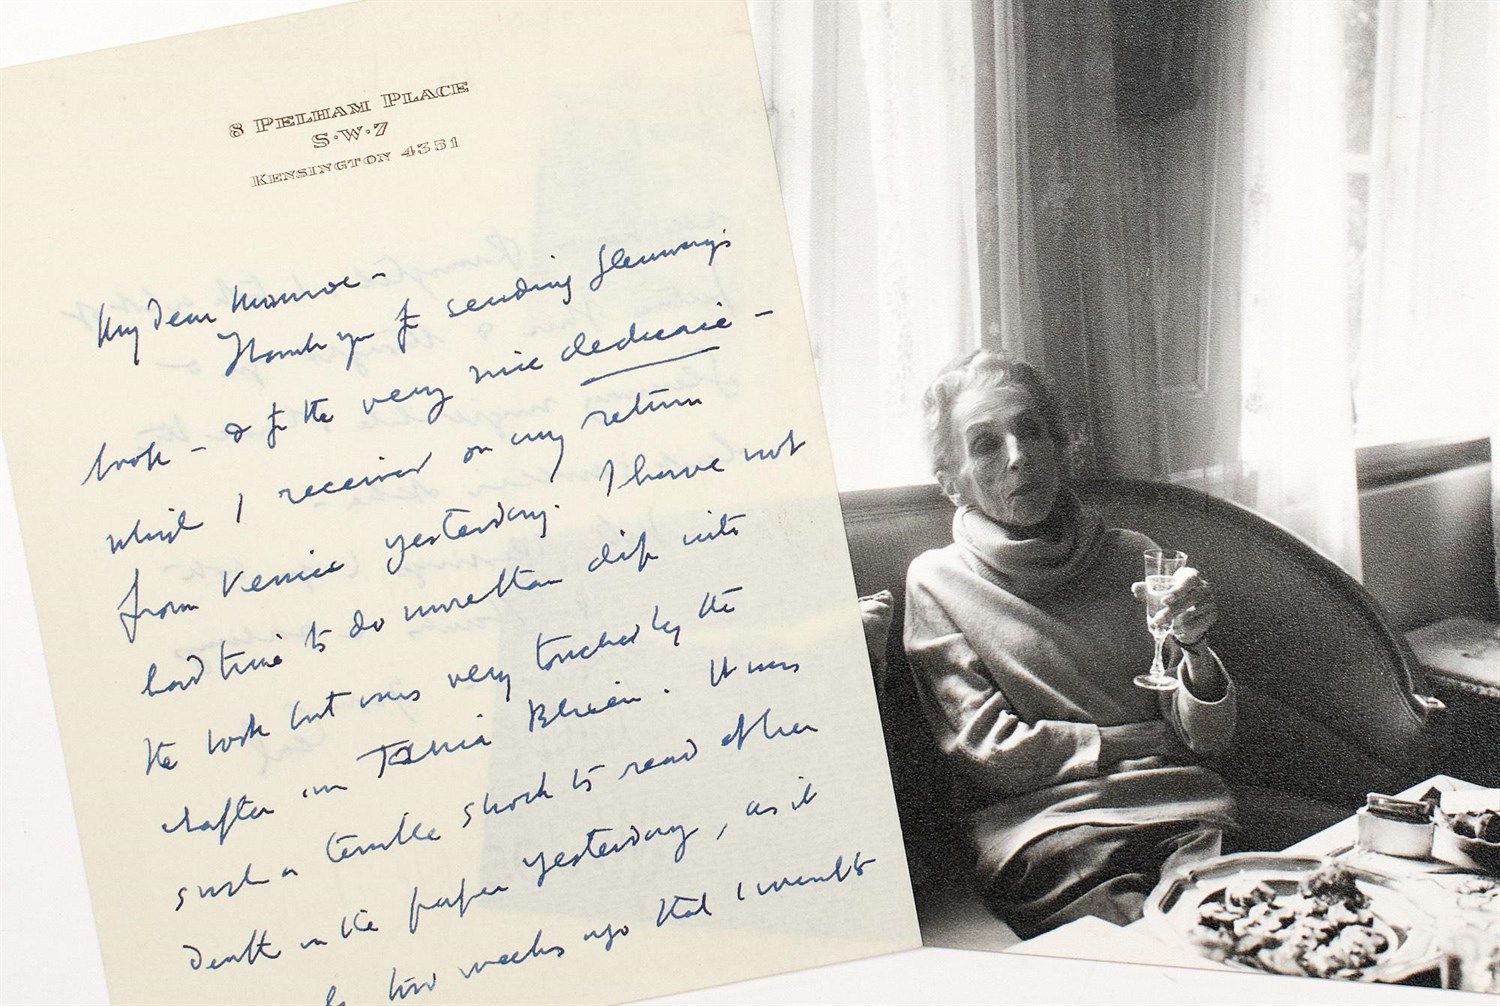 8 PELHAM PLACE
S·W·7
KENSINGTON 4351
My Dear Monroe –
Thank you for sending Glenway's
book – & for the very nice dedicace –
which I received on my return
from Venice yesterday. I have not
had time to do more than dip into
the book but was very touched by the
chapter on Tania Blixen. It was
such a terrible shock to read of her
death in the paper yesterday, as it
two weeks ago that I went to